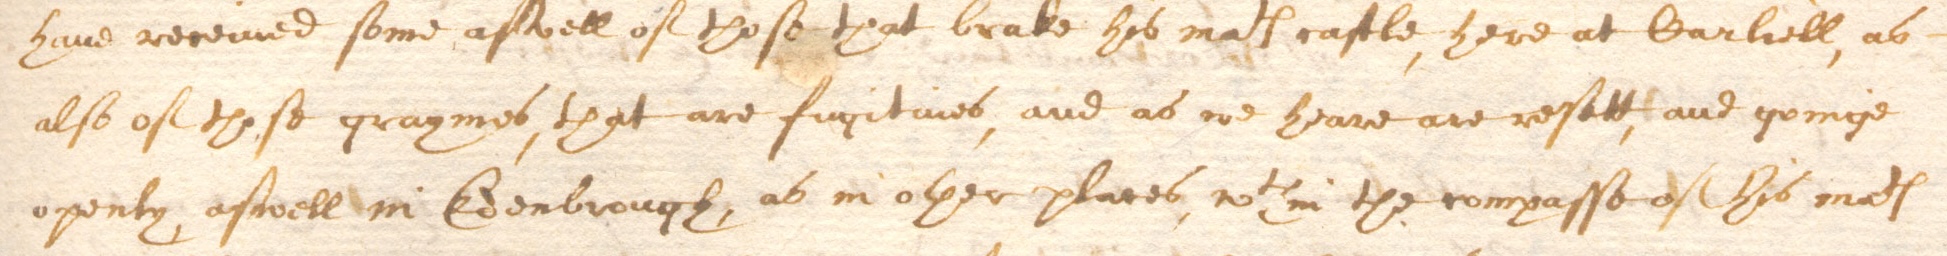 have received some aswell of those that brake his mats castle, here at Carliell, as
also of those graymes, that are fugitives, and as we heare are resett, and goinge
openly aswell in Edenbrough, as in other places, wthin the compasse of his mats